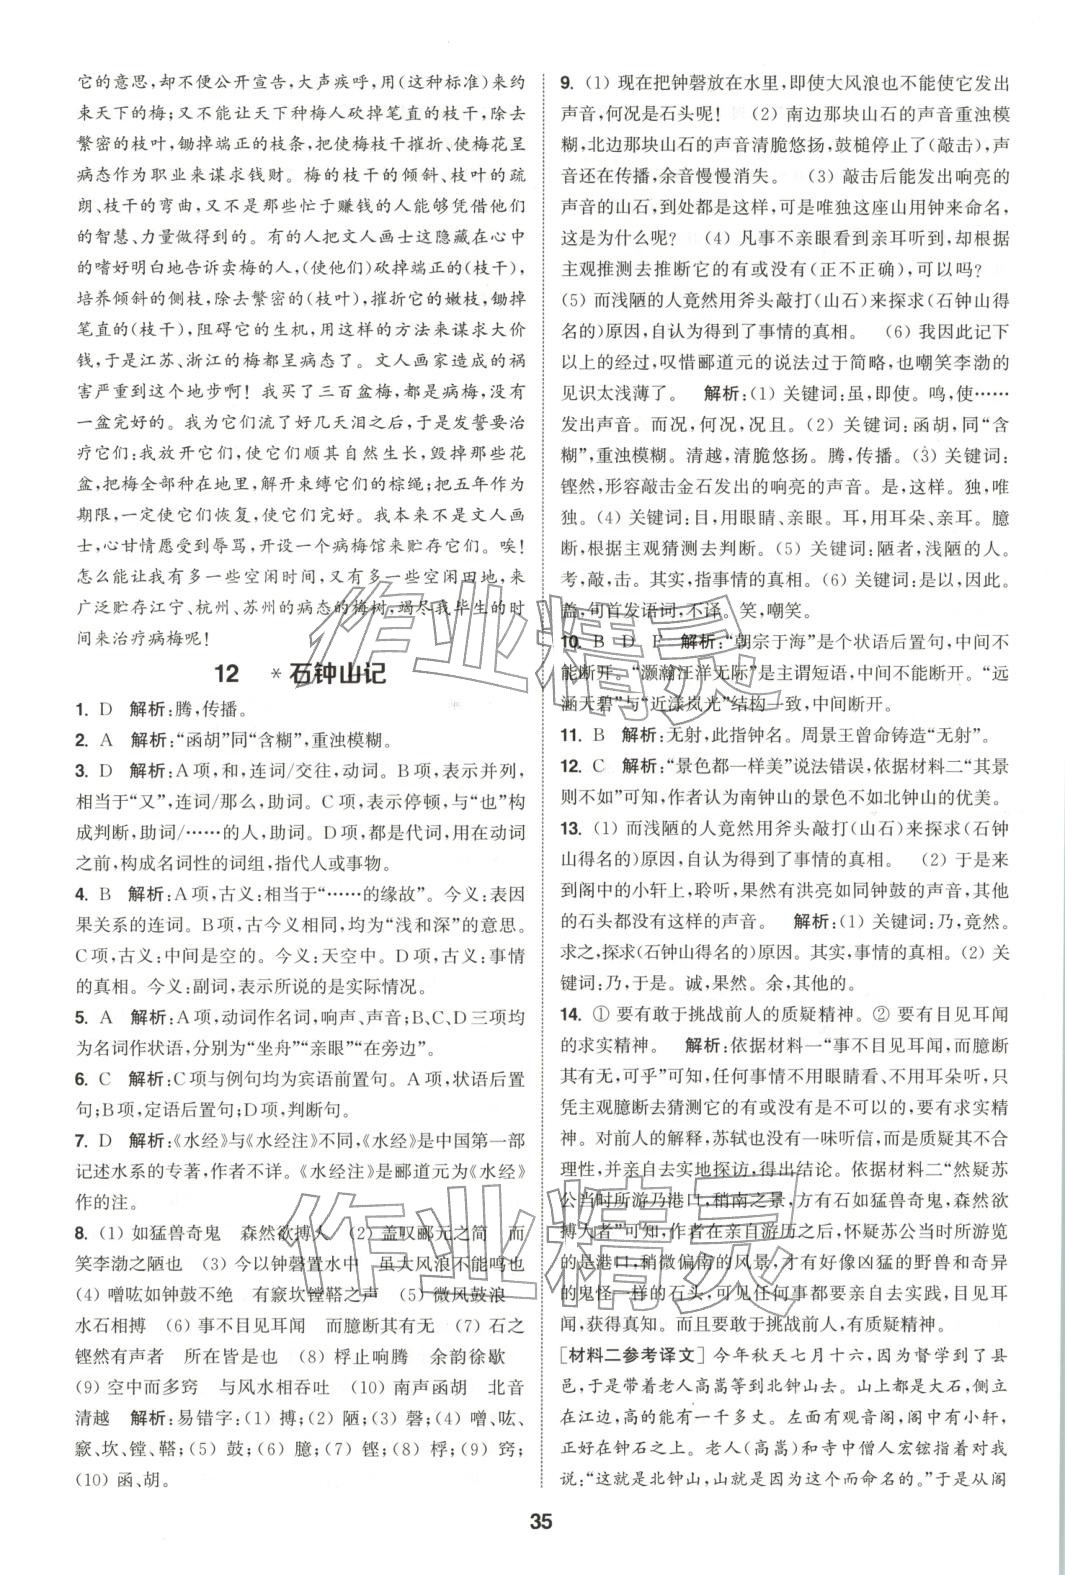 它的意思,却不便公开宣告,大声疾呼,用(这种标准)来约
束天下的梅;又不能让天下种梅人砍掉笔直的枝干,除去
繁密的枝叶,锄掉端正的枝条,把使梅枝干摧折、使梅花呈
病态作为职业来谋求钱财。梅的枝干的倾斜、枝叶的疏
朗、枝干的弯曲,又不是那些忙于赚钱的人能够凭借他们
的智慧、力量做得到的。有的人把文人画士这隐藏在心中
的嗜好明白地告诉卖梅的人,(使他们)砍掉端正的(枝干),
培养倾斜的侧枝,除去繁密的(枝叶),摧折它的嫩枝,锄掉
笔直的(枝干),阻碍它的生机,用这样的方法来谋求大价
钱,于是江苏、浙江的梅都呈病态了。文人画家造成的祸
害严重到这个地步啊!我买了三百盆梅,都是病梅,没有
一盆完好的。我为它们流了好几天泪之后,于是发誓要治
疗它们:我放开它们,使它们顺其自然生长,毁掉那些花
盆,把梅全部种在地里,解开束缚它们的棕绳;把五年作为
期限,一定使它们恢复,使它们完好。我本来不是文人画
士,心甘情愿受到辱骂,开设一个病梅馆来贮存它们。唉!
怎么能让我有多一些空闲时间,又有多一些空闲田地,来
广泛贮存江宁、杭州、苏州的病态的梅树,竭尽我毕生的时
间来治疗病梅呢!
12 *石钟山记
1. D 解析:腾,传播。
2. A 解析:“函胡”同“含糊”,重浊模糊。
3. D 解析:A项,和,连词/交往,动词。B项,表示并列,
相当于“又”,连词/那么,助词。C项,表示停顿,与“也”构
成判断,助词/……的人,助词。D项,都是代词,用在动词
之前,构成名词性的词组,指代人或事物。
4. B 解析:A项,古义:相当于“……的缘故”。今义:表因
果关系的连词。B项,古今义相同,均为“浅和深”的意思。
C项,古义:中间是空的。今义:天空中。D项,古义:事情
的真相。今义:副词,表示所说的是实际情况。
5. A 解析:A项,动词作名词,响声、声音;B、C、D三项均
为名词作状语,分别为“坐舟”“亲眼”“在旁边”。
6. C 解析:C项与例句均为宾语前置句。A项,状语后置
句;B项,定语后置句;D项,判断句。
7. D 解析:《水经》与《水经注》不同,《水经》是中国第一部
记述水系的专著,作者不详。《水经注》是郦道元为《水经》
作的注。
8. (1) 如猛兽奇鬼 森然欲搏人 (2) 盖叹郦元之简 而
笑李渤之陋也 (3) 今以钟磬置水中 虽大风浪不能鸣也
(4) 噌吰如钟鼓不绝 有窾坎镗鞳之声 (5) 微风鼓浪
水石相搏 (6) 事不目见耳闻 而臆断其有无 (7) 石之
铿然有声者 所在皆是也 (8) 桴止响腾 余韵徐歇
(9) 空中而多窍 与风水相吞吐 (10) 南声函胡 北音
清越 解析:易错字:(1) 搏;(2) 陋;(3) 磬;(4) 噌、吰、
窾、坎、镗、鞳;(5) 鼓;(6) 臆;(7) 铿;(8) 桴;(9) 窍;
(10) 函、胡。
9. (1) 现在把钟磬放在水里,即使大风浪也不能使它发出
声音,何况是石头呢! (2) 南边那块山石的声音重浊模
糊,北边那块山石的声音清脆悠扬,鼓槌停止了(敲击),声
音还在传播,余音慢慢消失。 (3) 敲击后能发出响亮的
声音的山石,到处都是这样,可是唯独这座山用钟来命名,
这是为什么呢? (4) 凡事不亲眼看到亲耳听到,却根据
主观推测去推断它的有或没有(正不正确),可以吗?
(5) 而浅陋的人竟然用斧头敲打(山石)来探求(石钟山得
名的)原因,自认为得到了事情的真相。 (6) 我因此记下
以上的经过,叹惜郦道元的说法过于简略,也嘲笑李渤的
见识太浅薄了。 解析:(1) 关键词:虽,即使。鸣,使……
发出声音。而况,何况,况且。(2) 关键词:函胡,同“含
糊”,重浊模糊。清越,清脆悠扬。腾,传播。(3) 关键词:
铿然,形容敲击金石发出的响亮的声音。是,这样。独,唯
独。(4) 关键词:目,用眼睛、亲眼。耳,用耳朵、亲耳。臆
断,根据主观猜测去判断。(5) 关键词:陋者,浅陋的人。
考,敲,击。其实,指事情的真相。(6) 关键词:是以,因此。
盖,句首发语词,不译。笑,嘲笑。
10. B D F 解析:“朝宗于海”是个状语后置句,中间不
能断开。“灏瀚汪洋无际”是主谓短语,中间不能断开。“远
涵天碧”与“近漾岚光”结构一致,中间断开。
11. B 解析:无射,此指钟名。周景王曾命铸造“无射”。
12. C 解析:“景色都一样美”说法错误,依据材料二“其景
则不如”可知,作者认为南钟山的景色不如北钟山的优美。
13. (1) 而浅陋的人竟然用斧头敲打(山石)来探求(石钟
山得名的)原因,自认为得到了事情的真相。 (2) 于是来
到阁中的小轩上,聆听,果然有洪亮如同钟鼓的声音,其他
的石头都没有这样的声音。 解析:(1) 关键词:乃,竟然。
求之,探求(石钟山得名的)原因。其实,事情的真相。(2) 关
键词:乃,于是。诚,果然。余,其他的。
14. ① 要有敢于挑战前人的质疑精神。② 要有目见耳闻
的求实精神。 解析:依据材料一“事不目见耳闻,而臆断
其有无,可乎”可知,任何事情不用眼睛看、不用耳朵听,只
凭主观臆断去猜测它的有或没有是不可以的,要有求实精
神。对前人的解释,苏轼也没有一味听信,而是质疑其不合
理性,并亲自去实地探访,得出结论。依据材料二“然疑苏
公当时所游乃港口,稍南之景,方有石如猛兽奇鬼,森然欲
搏人者”可知,作者在亲自游历之后,怀疑苏公当时所游览
的是港口,稍微偏南的风景,才有好像凶猛的野兽和奇异
的鬼怪一样的石头,可见任何事都要亲身求证,目见耳
闻,获得真知。而且要敢于挑战前人,要有质疑精神。
[材料二参考译文] 今年秋天七月十六,因为督学到了县
邑,于是带着老人高嵩等到北钟山去。山上都是大石,侧立
在江边,高的能有一千多丈。左面有观音阁,阁中有小轩,
正好在钟石之上。老人(高嵩)和寺中僧人宏铉指着对我
说:“这就是北钟山,山就是因为这个而命名的。”于是从阁
35
作业精灵
作业精灵